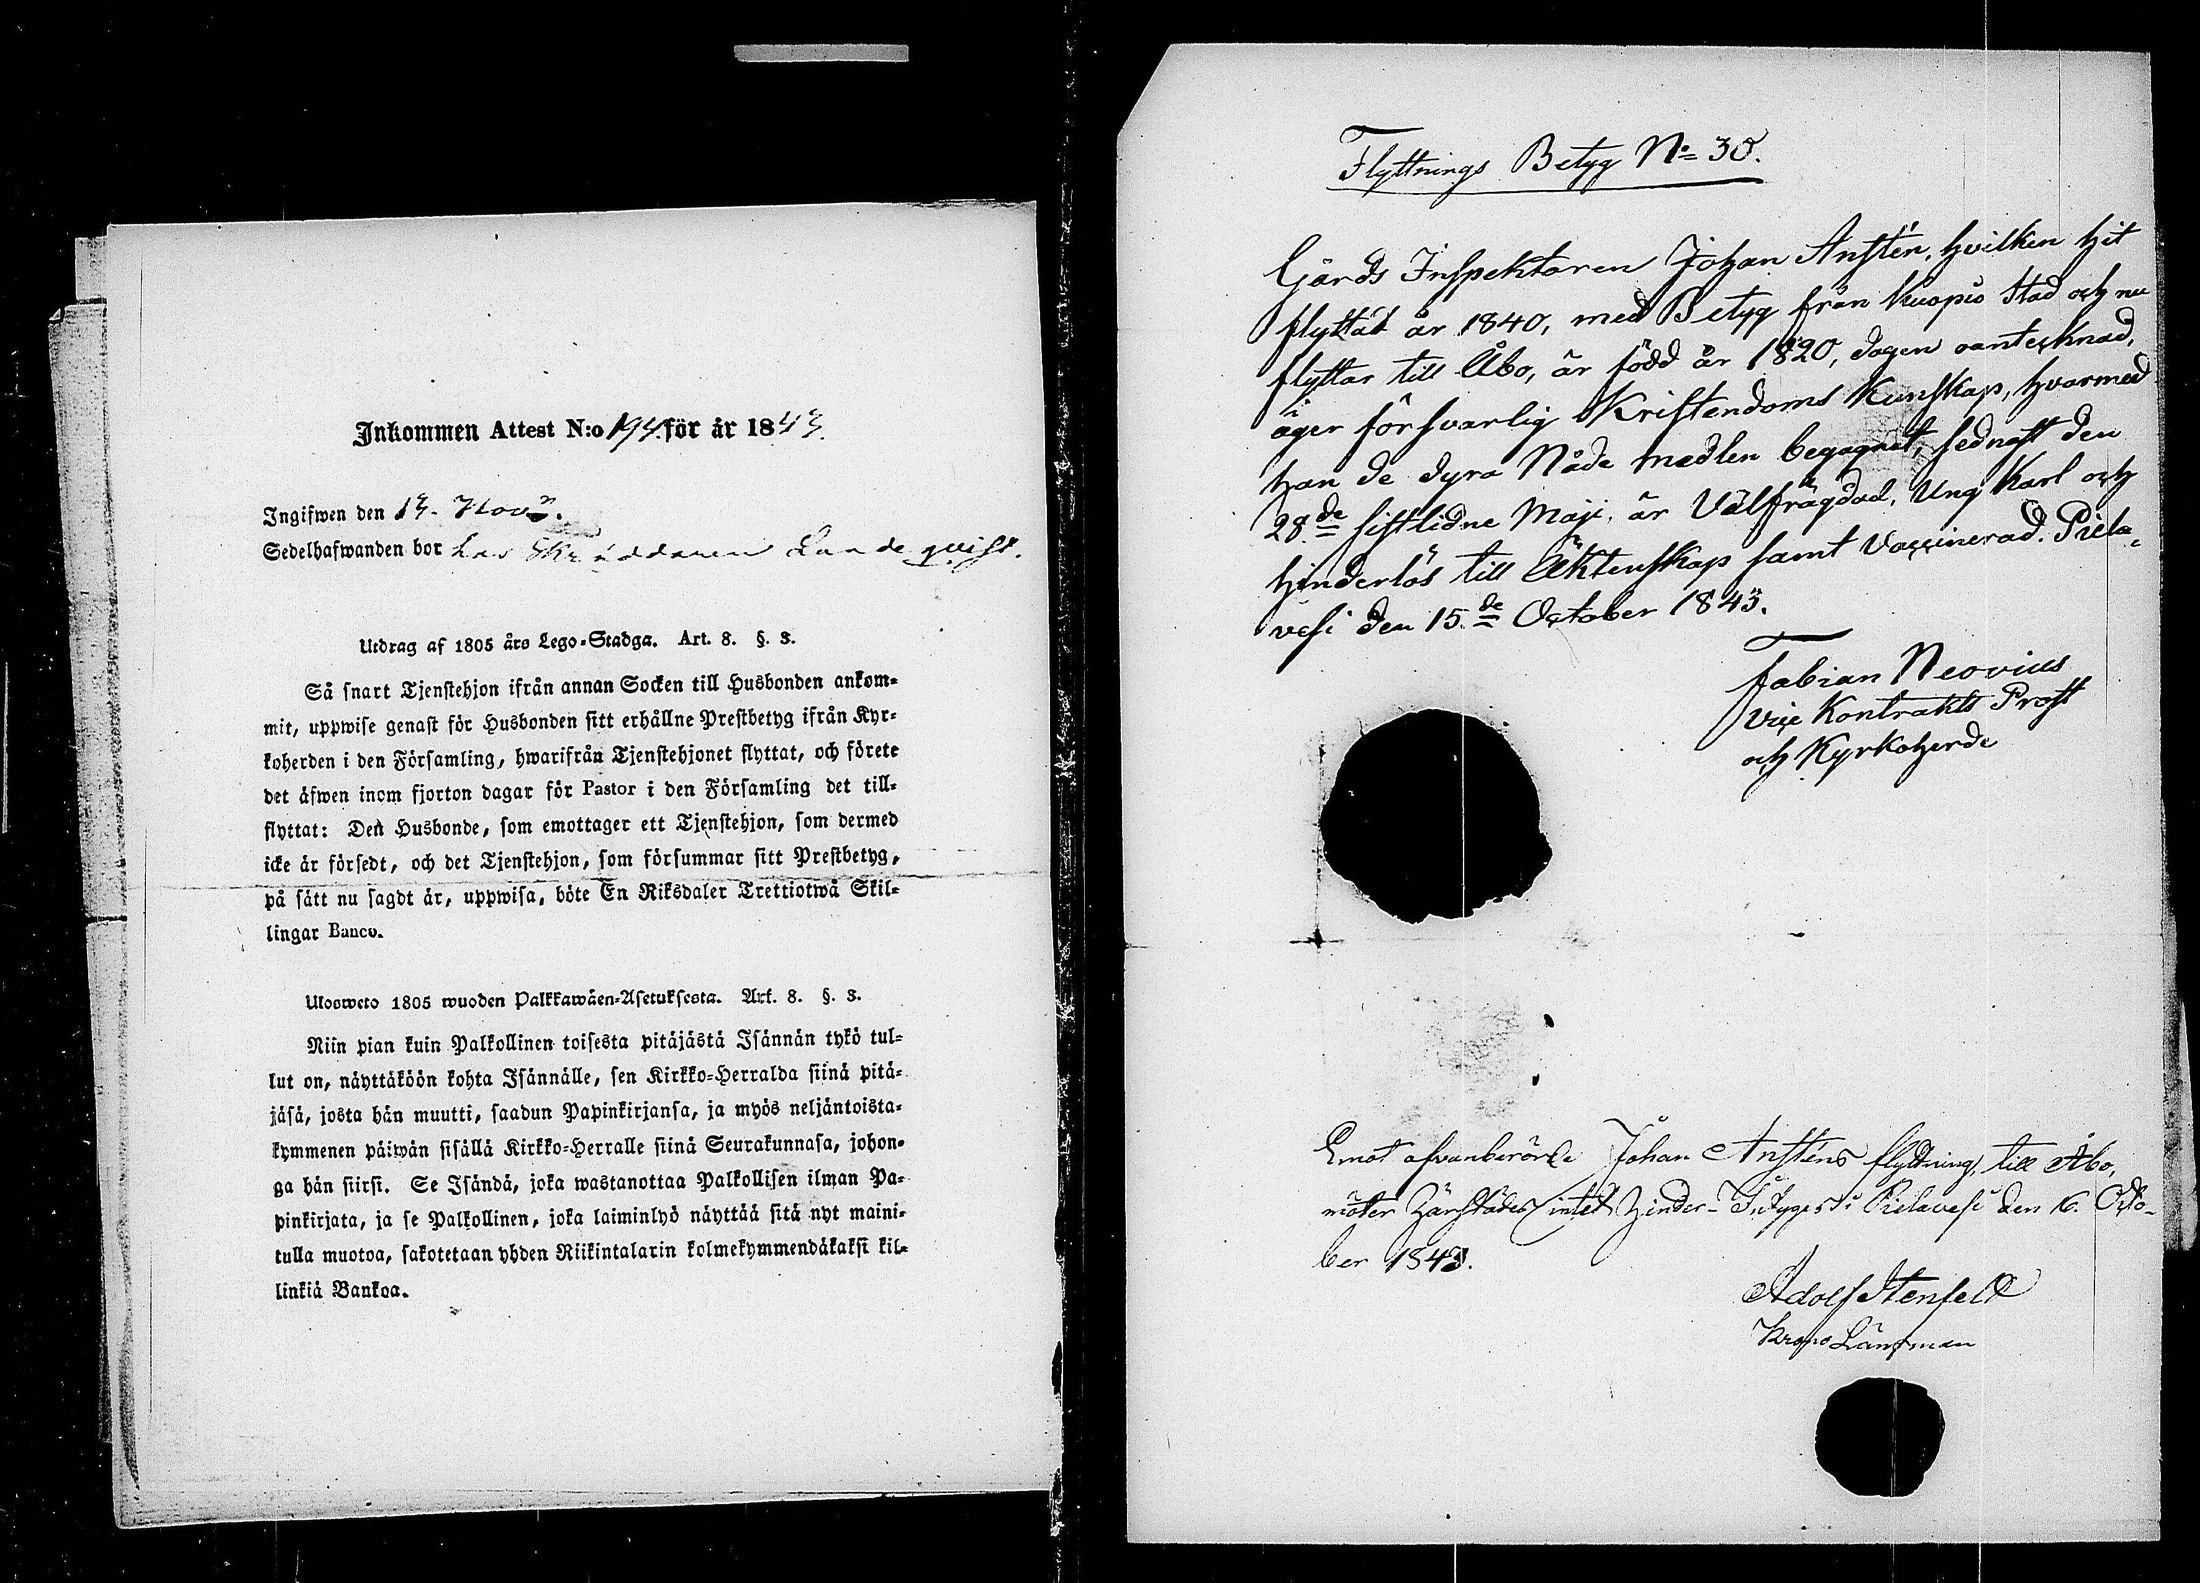 Inkommen Attest N:o 194 för år 1843.
Ingifwen den 13. Nov.
Sedelhafwanden bor hos Skräddaren Lindeqvist.
Utdrag af 1805 års Lego-Stadga. Art. 8. §. 3.
Så snart Tjenstehjon ifrån annan Socken till Husbonden ankom-
mit, uppwise genast för Husbonden sitt erhållne Prestbetyg ifrån Kyr-
koherden i den Församling, hwarifrån Tjenstehjonet flyttat, och förete
det äfwen inom fjorton dagar för Pastor i den Församling det till-
flyttat: Den Husbonde, som emottager ett Tjenstehjon, som dermed
icke är försedt, och det Tjenstehjon, som försummar sitt Prestbetyg,
på sätt nu sagdt är, uppwisa, böte En Riksdaler Trettiotwå Skil-
lingar Banco.
Ulosweto 1805 wuoden Palkkawäen-Asetuksesta. Art. 8. §. 3.
Niin pian kuin Palkollinen toisesta pitäjästä Isännän tykö tul-
lut on, näyttäköön kohta Isännälle, sen Kirkko-Herralda siinä pitä-
jäsä, josta hän muutti, saadun Papinkirjansa, ja myös neljäntoista-
kymmenen päiwän sisällä Kirkko-Herralle siinä Seurakunnasa, johon-
ga hän siirsi. Se Isändä, joka wastanottaa Palkollisen ilman Pa-
pinkirjata, ja se Palkollinen, joka laiminlyö näyttää sitä nyt maini-
tulla muotoa, sakotetaan yhden Riikintalarin kolmekymmendäkaksi kil-
linkiä Bankoa.
Flyttnings Betyg No 30.
Gårds Inspektoren Johan Anstén, hvilken hit
flyttat år 1840, med Betyg från Kuopio Stad och nu
flyttar till Åbo, är född år 1820, dagen oantecknad,
äger försvarlig Kristendoms Kunskap, hvarmed
han de dyra Nåde medlen begagnat, sednast den
28.de sistlidne Maji, är Välfrägdad, Ung Karl och
hinderlös till Äktenskap samt Vaccinerad. Piela-
vesi den 15.de October 1843.
Fabian Neovius
Vice Kontrakts Prost
och Kyrkoherde
Emot ofvanberörde Johan Ansténs flyttning till Åbo,
möter härstädes intet hinder - Intygas i Pielavesi den 16. Octo-
ber 1843.
Adolf Stenfelt
Krono Länsman